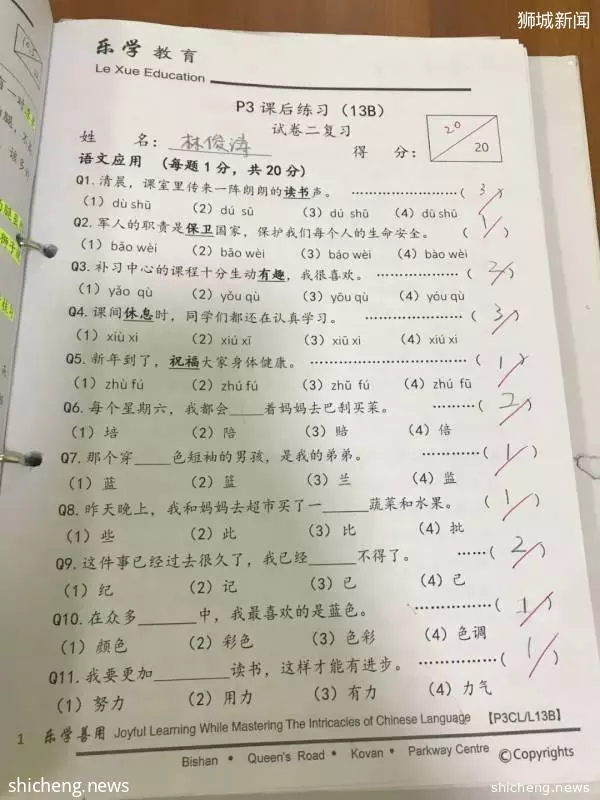 狮城新闻
乐学教育
Le Xue Education
P3 课后练习（13B）
试卷二复习
姓 名：林俊涛 得 分：20 20
语文应用 （每题1分，共20分）
Q1. 清晨，课室里传来一阵朗朗的读书声。 ……………………( 3 )
（1）dù shū （2）dú sū （3）dú shū （4）dū shū
Q2. 军人的职责是保卫国家，保护我们每个人的生命安全。 ( 1 )
（1）bǎo wèi （2）bāo wèi （3）báo wèi （4）bào wèi
Q3. 补习中心的课程十分生动有趣，我很喜欢。 ……………… ( 2 )
（1）yǎo qù （2）yǒu qù （3）yōu qù （4）yóu qù
Q4. 课间休息时，同学们都还在认真学习。 ………………… ( 3 )
（1）xiù xi （2）xiú xī （3）xiū xi （4）xiú xi
Q5. 新年到了，祝福大家身体健康。 ……………………… ( 1 )
（1）zhù fú （2）zhú fú （3）zhǔ fú （4）zhú fū
Q6. 每个星期六，我都会____着妈妈去巴刹买菜。 ………( 2 )
（1）培 （2）陪 （3）赔 （4）倍
Q7. 那个穿____色短袖的男孩，是我的弟弟。 …………( 1 )
（1）蓝 （2）篮 （3）兰 （4）监
Q8. 昨天晚上，我和妈妈去超市买了一______蔬菜和水果。 ( 1 )
（1）些 （2）此 （3）比 （4）批
Q9. 这件事已经过去很久了，我已经______不得了。 ……( 2 )
（1）纪 （2）记 （3）已 （4）己
Q10. 在众多_______中，我最喜欢的是蓝色。 ……………( 1 )
（1）颜色 （2）彩色 （3）色彩 （4）色调
Q11. 我要更加_________读书，这样才能有进步。 ……………( 1 )
（1）努力 （2）用力 （3）有力 （4）力气
1 乐学善用 Joyful Learning While Mastering The Intricacies of Chinese Language 【P3CL/L13B】
Bishan • Queen's Road • Kovan • Parkway Centre ©Copyrights
shicheng.news
shicheng.news